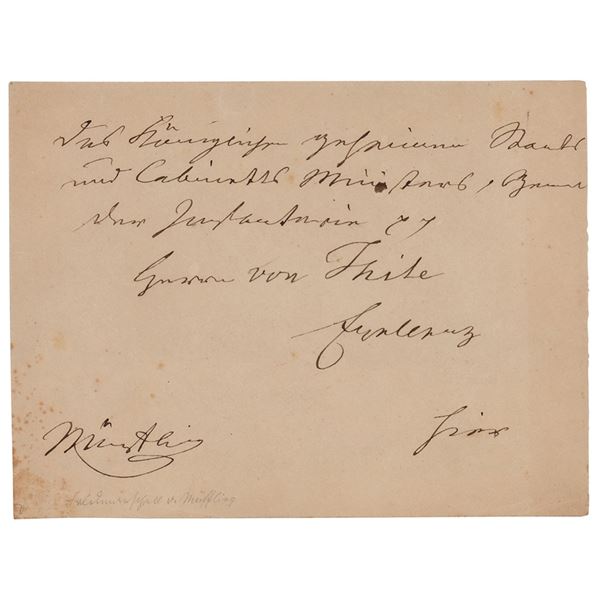 Des Königlichen geheimen Staats
und Cabinetts Ministers, Gener
der Infanterie pp
Herrn von Thile
Excellenz
Müffling
hier
Feldmarschall v. Müffling